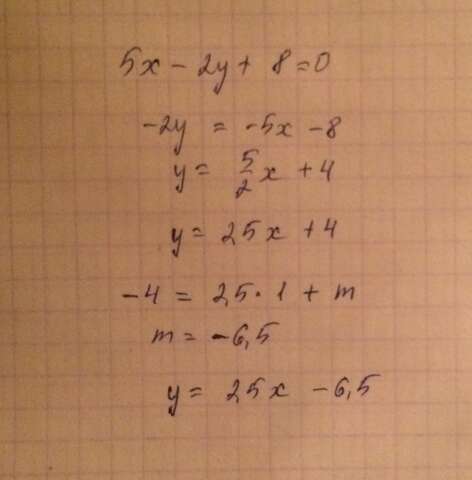 5x - 2y + 8 = 0
-2y = -5x - 8
y = 5/2 x + 4
y = 2,5x + 4
-4 = 2,5 · 1 + m
m = -6,5
y = 2,5x - 6,5